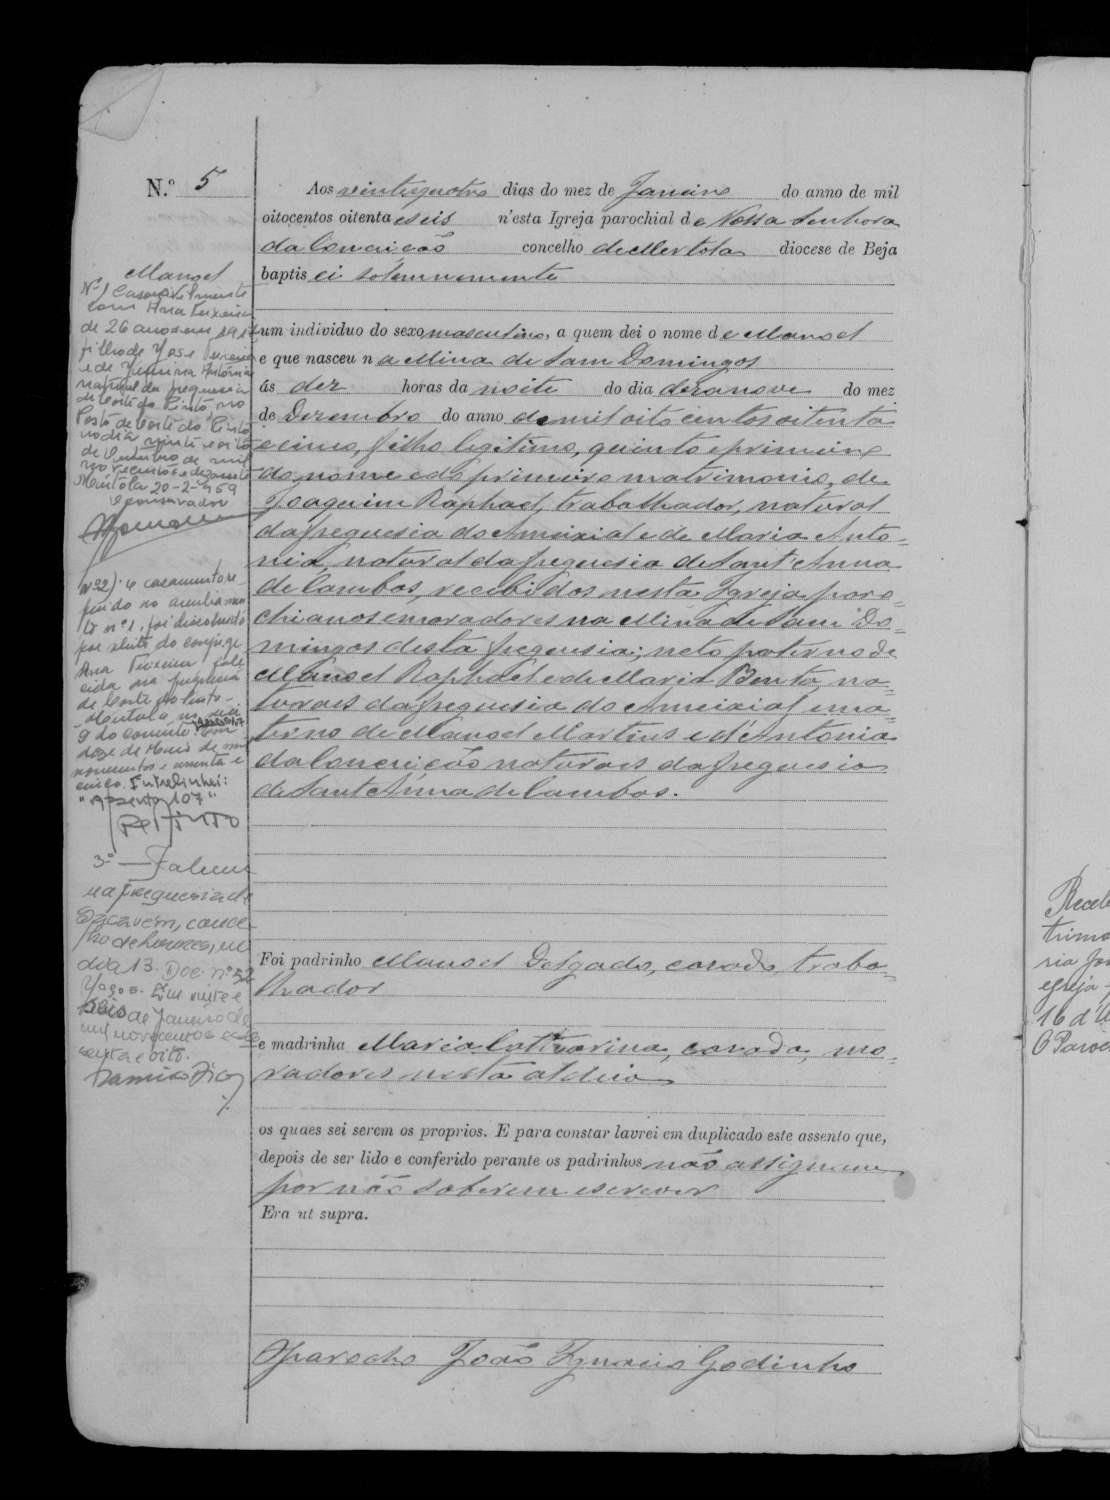 N.º 5
Aos vinte quatro dias do mez de Janeiro do anno de mil
oitocentos oitenta e seis n'esta Igreja parochial de Nossa Senhora
da Conceição concelho de Mertola diocese de Beja
baptisei solemnemente
um individuo do sexo masculino, a quem dei o nome de Manoel
e que nasceu na Mina de Sam Domingos
ás dez horas da noite do dia dezanove do mez
de Dezembro do anno de mil oito centos oitenta
e cinco, filho legitimo, quinto e primeiro
do nome e do primeiro matrimonio, de
Joaquim Raphael, trabalhador, natural
da freguesia do Ameixial e de Maria Anto-
nia, natural da freguesia de Sant'Anna
de Cambas, recebidos nesta Igreja, paro-
chianos e moradores na Mina de Sam Do-
mingos desta freguesia; neto paterno de
Manoel Raphael e de Maria Benta, na-
turaes da freguesia do Ameixial e ma-
terno de Manoel Martins e d'Antonia
da Conceição naturaes da freguesia
de Sant'Anna de Cambas.
Foi padrinho Manoel Delgado, casado, traba-
lhador
e madrinha Maria Catharina, casada, mo-
radores nesta aldeia
os quaes sei serem os proprios. E para constar lavrei em duplicado este assento que,
depois de ser lido e conferido perante os padrinhos não assignam
por não saberem escrever
Era ut supra.
O parocho João Ignacio Godinho
Manoel
Nº 1 Casou civilmente
com Ana Teixeira
de 26 anos
filha de José Teixeira
e de Antónia
natural da freguesia
de Corte do Pinto, no
Posto de Corte do Pinto
no dia vinte e oito
de Outubro de mil
novecentos e dezassete
Mértola 20-2-959
O conservador
Nº 2) O casamento re-
ferido no averbamen
to nº 1, foi dissolvido
por óbito do conjuge
Ana Teixeira fale
cida na freguesia
de Corte do Pinto
Mértola
doze de Maio de mil
novecentos e
cinco. Entrelinhei:
"Assento 107"
3.º — Faleceu
na freguesia de
Sacavém, conce-
lho de Loures, no
dia 13. Doc. nº 52
Maço 2. Em vinte e
seis de Janeiro de
mil novecentos e ses
senta e oito.
Recebe
16 d'
O Paroc